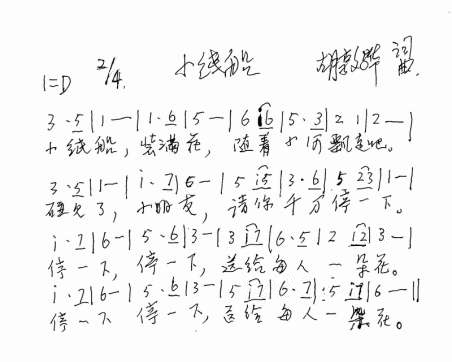 1=D 2/4. 小纸船 胡敦骅 词曲.
3 · 5 | 1 — | 1 · 6 | 5 — | 6 i6 | 5 · 3 | 2 1 | 2 — |
小纸船, 装满花, 随着小河飘走吧。
3 · 5 | 1 — | i · 7 | 6 — | 5 i5 | 3 · 6 | 5 23 | 1 — |
碰见了, 小朋友, 请你千万停一下。
i · 7 | 6 — | 5 · 6 | 3 — | 3 i7 | 6 · 5 | 2 12 | 3 — |
停一下, 停一下, 送给每人一朵花。
i · 7 | 6 — | 5 · 6 | 3 — | 5 i7 | 6 · 7 | 5 i7 | 6 — ||
停一下 停一下, 送给每人一朵花。